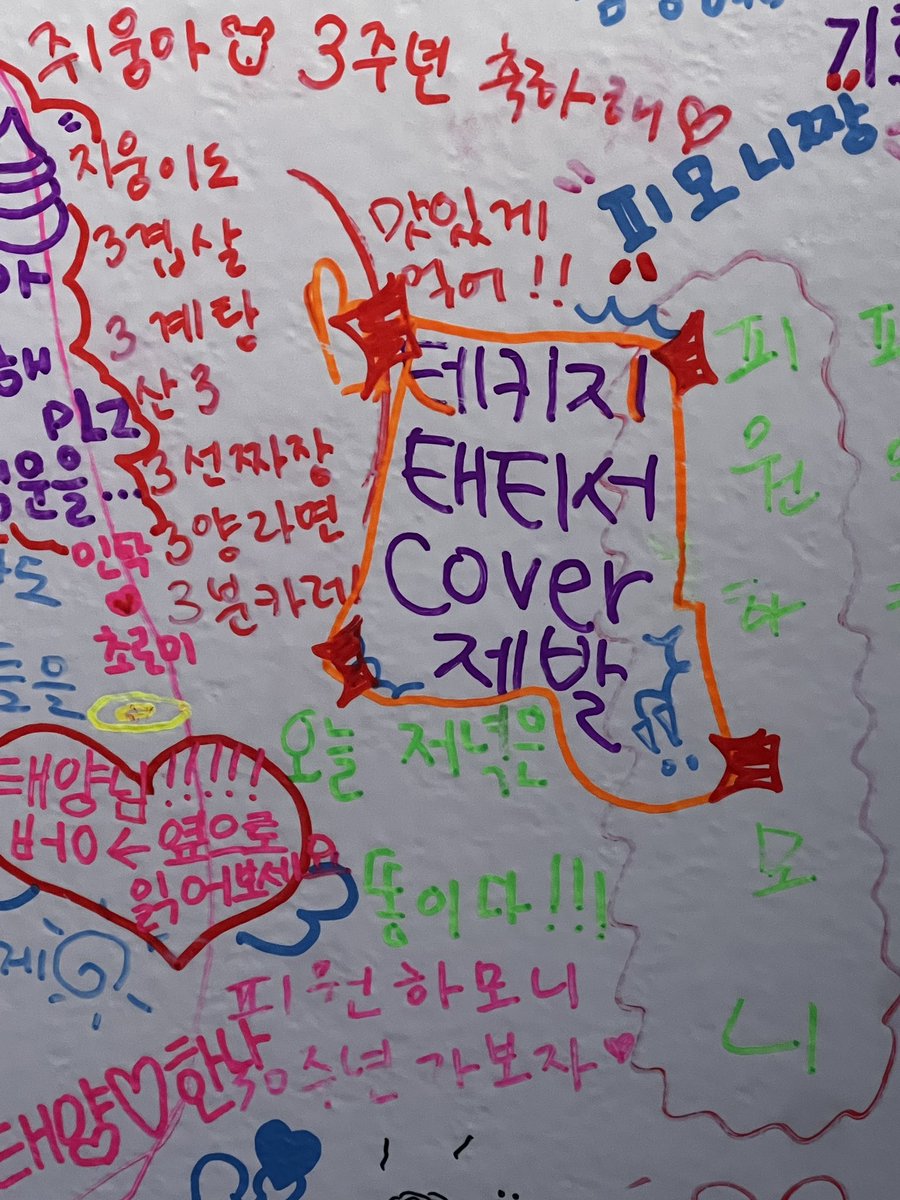 쥐웅아 업 3주년 축하해♡
지웅이도
3겹살
3계탕
산3
3선짜장
3양라면
3분카레!
맛있게
먹어!!
피모니짱
테키지
태티서
Cover
제발
PLZ
인탁
♥
초롬이
오늘 저녁은
똥이다!!!
태양님!!!!!!
버0 ← 옆으로
읽어보세요
피원하모니
30주년 가보자♥
태양♡한낮
피
원
하
모
니